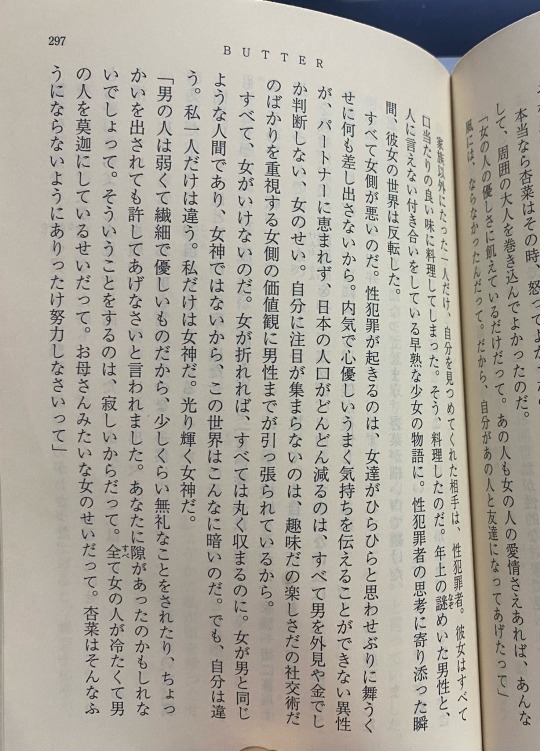 本当なら杏菜はその時、怒ってよか
して、周囲の大人を巻き込んでよかったのだ。
「女の人の優しさに飢えているだけだって。あの人も女の人の愛情さえあれば、あんな
風には、ならなかったんだって。だから、自分があの人と友達になってあげたって」
BUTTER
297
家族以外にたった一人だけ、自分を見つめてくれた相手は、性犯罪者。彼女はすべて
口当たりの良い味に料理してしまった。そう、料理したのだ。年上の謎めいた男性と、
人に言えない付き合いをしている早熟な少女の物語に。性犯罪者の思考に寄り添った瞬
間、彼女の世界は反転した。
すべて女側が悪いのだ。性犯罪が起きるのは、女達がひらひらと思わせぶりに舞うく
せに何も差し出さないから。内気で心優しいうまく気持ちを伝えることができない異性
が、パートナーに恵まれず、日本の人口がどんどん減るのは、すべて男を外見や金でし
か判断しない、女のせい。自分に注目が集まらないのは、趣味だの楽しさだの社交術だ
のばかりを重視する女側の価値観に男性までが引っ張られているから。
すべて、女がいけないのだ。女が折れれば、すべては丸く収まるのに。女が男と同じ
ような人間であり、女神ではないから、この世界はこんなに暗いのだ。でも、自分は違
う。私一人だけは違う。私だけは女神だ。光り輝く女神だ。
「男の人は弱くて繊細で優しいものだから、少しくらい無礼なことをされたり、ちょっ
かいを出されても許してあげなさいと言われました。あなたに隙があったのかもしれな
いでしょって。そういうことをするのは、寂しいからだって。全て女の人が冷たくて男
の人を莫迦にしているせいだって。お母さんみたいな女のせいだって。杏菜はそんなふ
うにならないようにありったけ努力しなさいって」